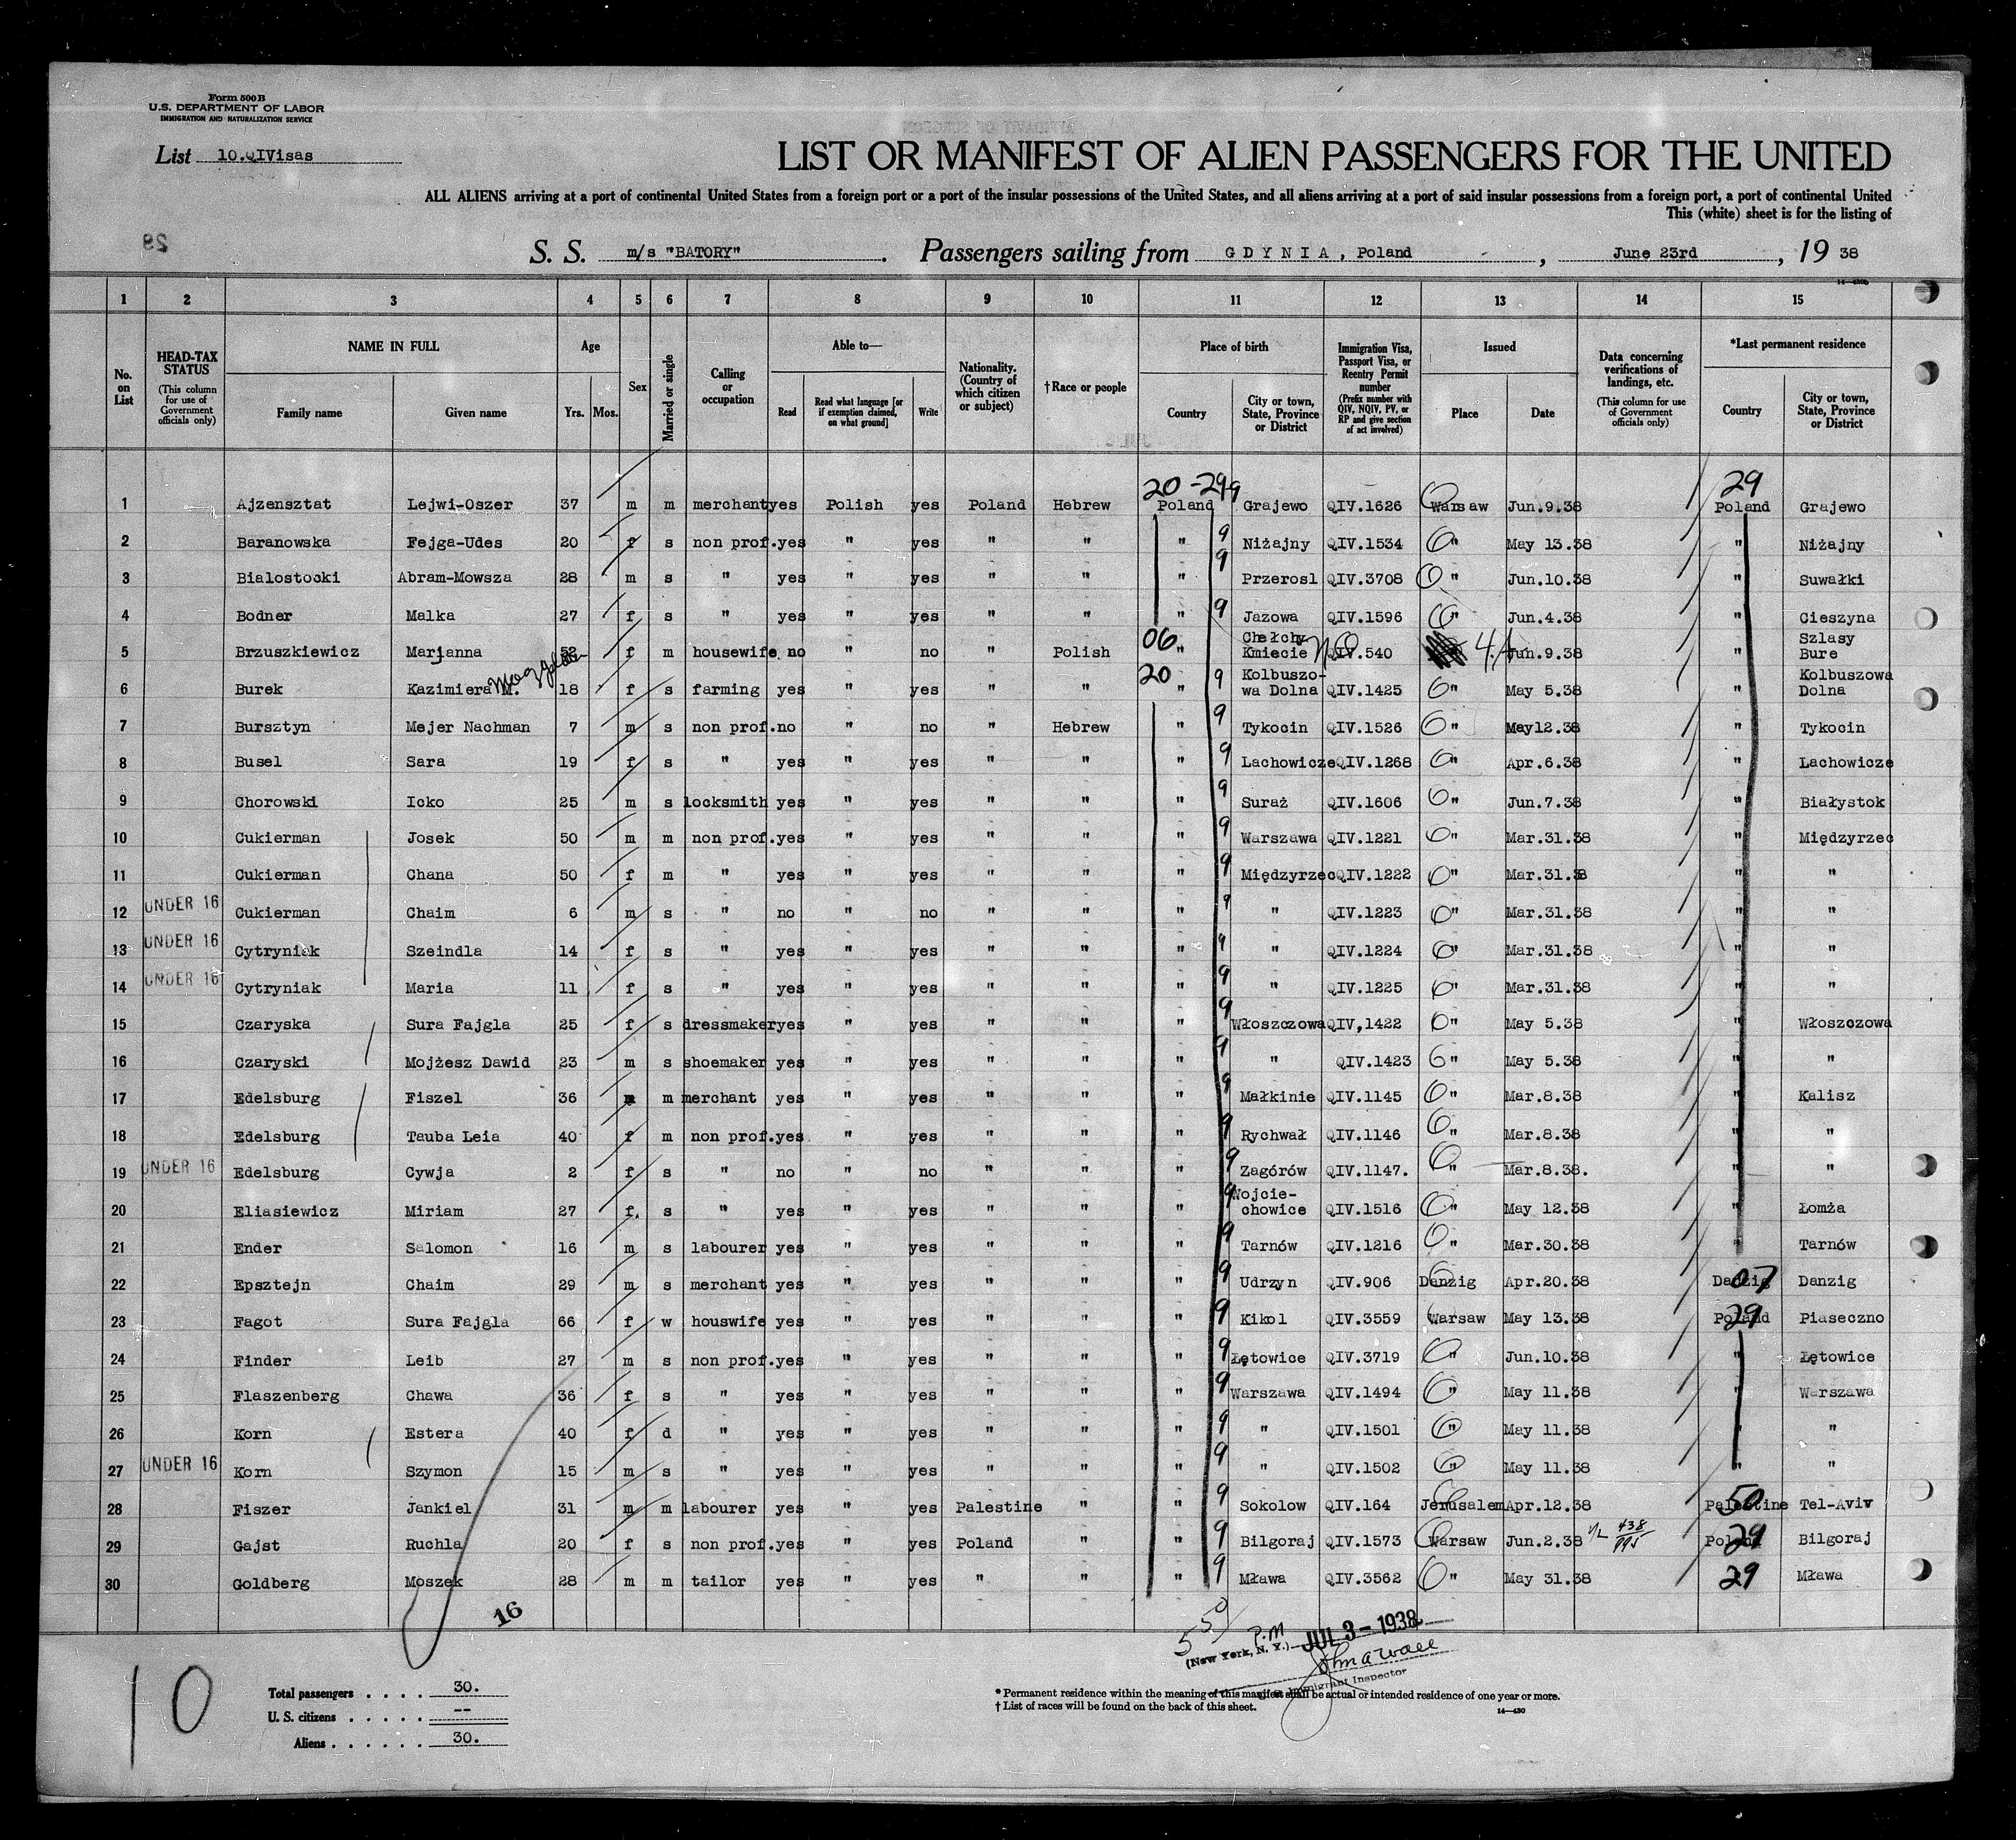 Form 500B
U.S. DEPARTMENT OF LABOR
IMMIGRATION AND NATURALIZATION SERVICE
List 10.QIVisas
LIST OR MANIFEST OF ALIEN PASSENGERS FOR THE UNITED
ALL ALIENS arriving at a port of continental United States from a foreign port or a port of the insular possessions of the United States, and all aliens arriving at a port of said insular possessions from a foreign port, a port of continental United
This (white) sheet is for the listing of
S. S. m/s "BATORY" . Passengers sailing from GDYNIA, Poland , June 23rd , 19 38
14—430b
1 2 3 4 5 6 7 8 9 10 11 12 13 14 15
No. on List
HEAD-TAX STATUS (This column for use of Government officials only)
NAME IN FULL
Family name Given name
Age
Yrs. Mos.
Sex
Married or single
Calling or occupation
Able to—
Read Read what language [or if exemption claimed, on what ground] Write
Nationality. (Country of which citizen or subject)
†Race or people
Place of birth
Country City or town, State, Province or District
Immigration Visa, Passport Visa, or Reentry Permit number (Prefix number with QIV, NQIV, PV, or RP and give section of act involved)
Issued
Place Date
Data concerning verifications of landings, etc. (This column for use of Government officials only)
*Last permanent residence
Country City or town, State, Province or District
20-29 9 29
1 Ajzensztat Lejwi-Oszer 37 m m merchant yes Polish yes Poland Hebrew Poland Grajewo QIV.1626 Warsaw Jun.9.38 Poland Grajewo
2 Baranowska Fejga-Udes 20 f s non prof. yes " yes " " " 9 Niżajny QIV.1534 " May 13.38 " Niżajny
3 Bialostocki Abram-Mowsza 28 m s " yes " yes " " " 9 Przerosl QIV.3708 " Jun.10.38 " Suwałki
4 Bodner Malka 27 f s " yes " yes " " " 9 Jazowa QIV.1596 " Jun.4.38 " Cieszyna
5 Brzuszkiewicz Marjanna f m housewife no " no " Polish 06 " Chełchy Kmiecie QIV.540 Jun.9.38 " Szlasy Bure
6 Burek Kazimiera M. 18 f s farming yes " yes " " 20 " 9 Kolbuszo-wa Dolna QIV.1425 " May 5.38 " Kolbuszowa Dolna
7 Bursztyn Mejer Nachman 7 m s non prof. no " no " Hebrew " 9 Tykocin QIV.1526 " May12.38 " Tykocin
8 Busel Sara 19 f s " yes " yes " " " 9 Lachowicze QIV.1268 " Apr.6.38 " Lachowicze
9 Chorowski Icko 25 m s locksmith yes " yes " " " 9 Suraż QIV.1606 " Jun.7.38 " Białystok
10 Cukierman Josek 50 m m non prof. yes " yes " " " 9 Warszawa QIV.1221 " Mar.31.38 " Międzyrzec
11 Cukierman Chana 50 f m " yes " yes " " " 9 Międzyrzec QIV.1222 " Mar.31.38 " "
12 UNDER 16 Cukierman Chaim 6 m s " no " no " " " 9 " QIV.1223 " Mar.31.38 " "
13 UNDER 16 Cytryniak Szeindla 14 f s " yes " yes " " " 9 " QIV.1224 " Mar.31.38 " "
14 UNDER 16 Cytryniak Maria 11 f s " yes " yes " " " 9 " QIV.1225 " Mar.31.38 " "
15 Czaryska Sura Fajgla 25 f s dressmaker yes " yes " " " 9 Włoszczowa QIV,1422 " May 5.38 " Włoszczowa
16 Czaryski Mojżesz Dawid 23 m s shoemaker yes " yes " " " 9 " QIV.1423 " May 5.38 " "
17 Edelsburg Fiszel 36 m m merchant yes " yes " " " 9 Małkinie QIV.1145 " Mar.8.38 " Kalisz
18 Edelsburg Tauba Leia 40 f m non prof. yes " yes " " " 9 Rychwał QIV.1146 " Mar.8.38 " "
19 UNDER 16 Edelsburg Cywja 2 f s " no " no " " " 9 Zagórów QIV.1147. " Mar.8.38. " "
20 Eliasiewicz Miriam 27 f. s " yes " yes " " " 9 Wojcie-chowice QIV.1516 " May 12.38 " Łomża
21 Ender Salomon 16 m s labourer yes " yes " " " 9 Tarnów QIV.1216 " Mar.30.38 " Tarnów
22 Epsztejn Chaim 29 m s merchant yes " yes " " " 9 Udrzyn QIV.906 Danzig Apr.20.38 Danzig 07 Danzig
23 Fagot Sura Fajgla 66 f w houswife yes " yes " " " 9 Kikol QIV.3559 Warsaw May 13.38 Poland 29 Piaseczno
24 Finder Leib 27 m s non prof. yes " yes " " " 9 Łętowice QIV.3719 " Jun.10.38 " Łętowice
25 Flaszenberg Chawa 36 f s " yes " yes " " " 9 Warszawa QIV.1494 " May 11.38 " Warszawa
26 Korn Estera 40 f d " yes " yes " " " 9 " QIV.1501 " May 11.38 " "
27 UNDER 16 Korn Szymon 15 m s " yes " yes " " " 9 " QIV.1502 " May 11.38 " "
28 Fiszer Jankiel 31 m m labourer yes " yes Palestine " " 9 Sokolow QIV.164 Jerusalem Apr.12.38 Palestine 50 Tel-Aviv
29 Gajst Ruchla 20 f s non prof. yes " yes Poland " " 9 Bilgoraj QIV.1573 Warsaw Jun.2.38 Poland 29 Bilgoraj
30 Goldberg Moszek 28 m m tailor yes " yes " " " 9 Mława QIV.3562 " May 31.38 29 Mława
16
P.M
(New York, N. Y.) JUL 3 - 1938
Immigrant Inspector
10
Total passengers . . . . 30.
U. S. citizens . . . . . --
Aliens . . . . . . 30.
* Permanent residence within the meaning of this manifest shall be actual or intended residence of one year or more.
† List of races will be found on the back of this sheet.
14—430